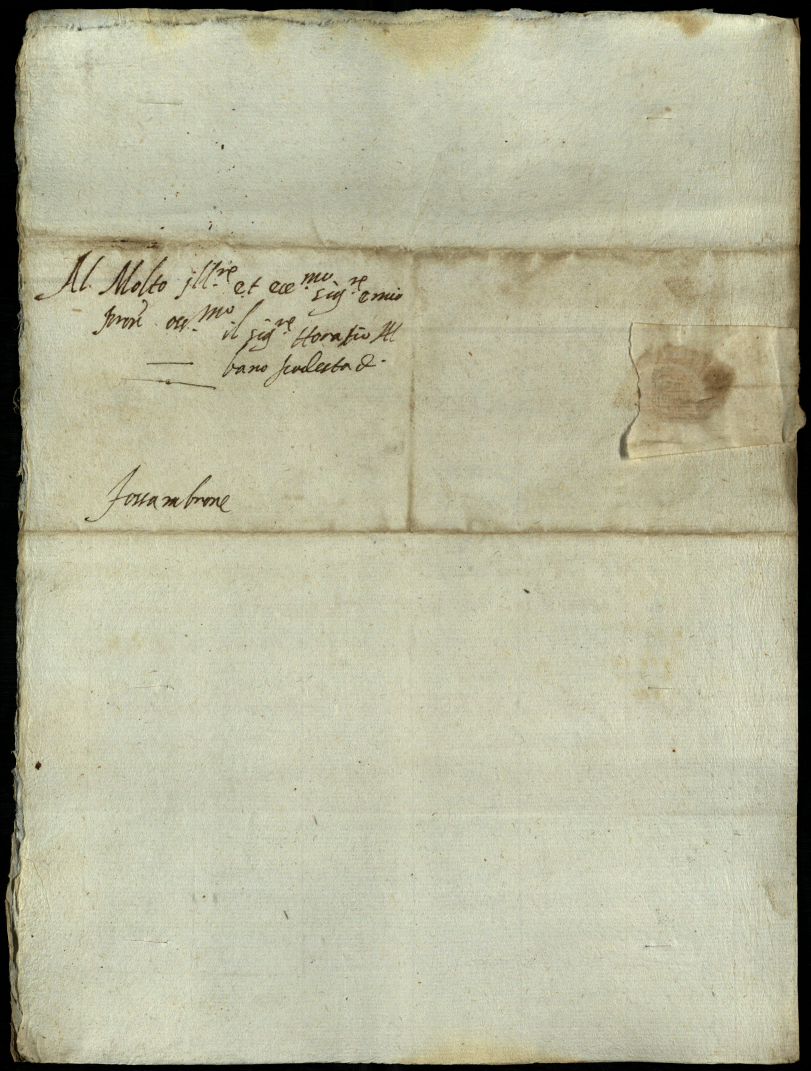 Al Molto Ill.re et ecc.mo sig.re e mio
pron oss.mo il sig.re Horatio Al
bano podesta &.
fossambrone